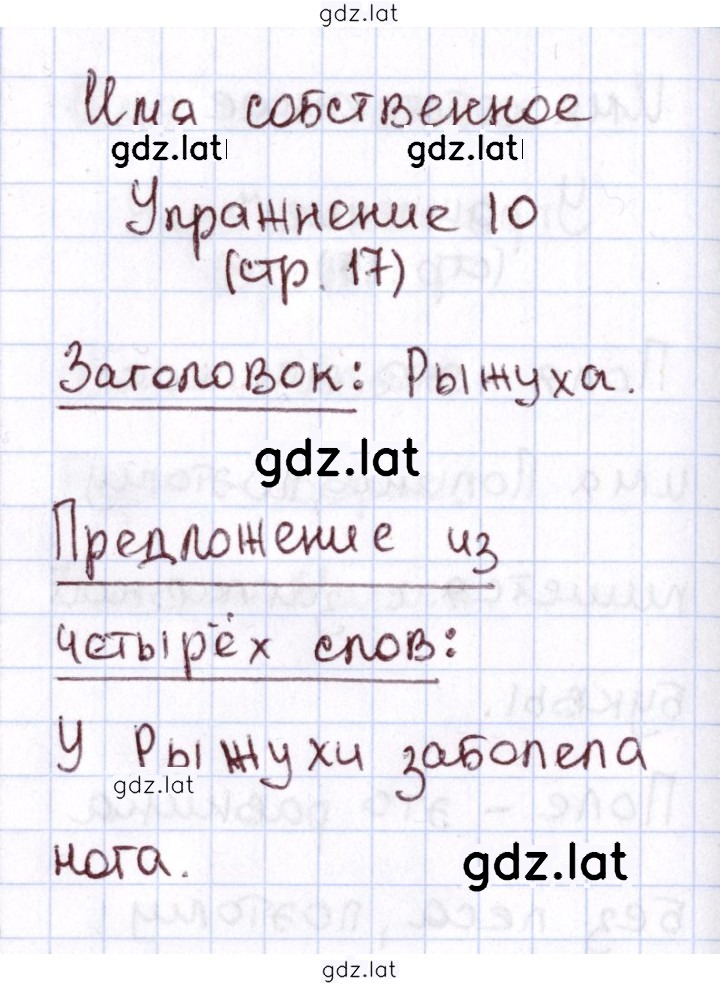 gdz.lat
Имя собственное
gdz.lat gdz.lat
Упражнение 10
(стр. 17)
Заголовок: Рыжуха.
gdz.lat
Предложение из
четырёх слов:
У Рыжухи заболела
gdz.lat
нога.
gdz.lat
gdz.lat